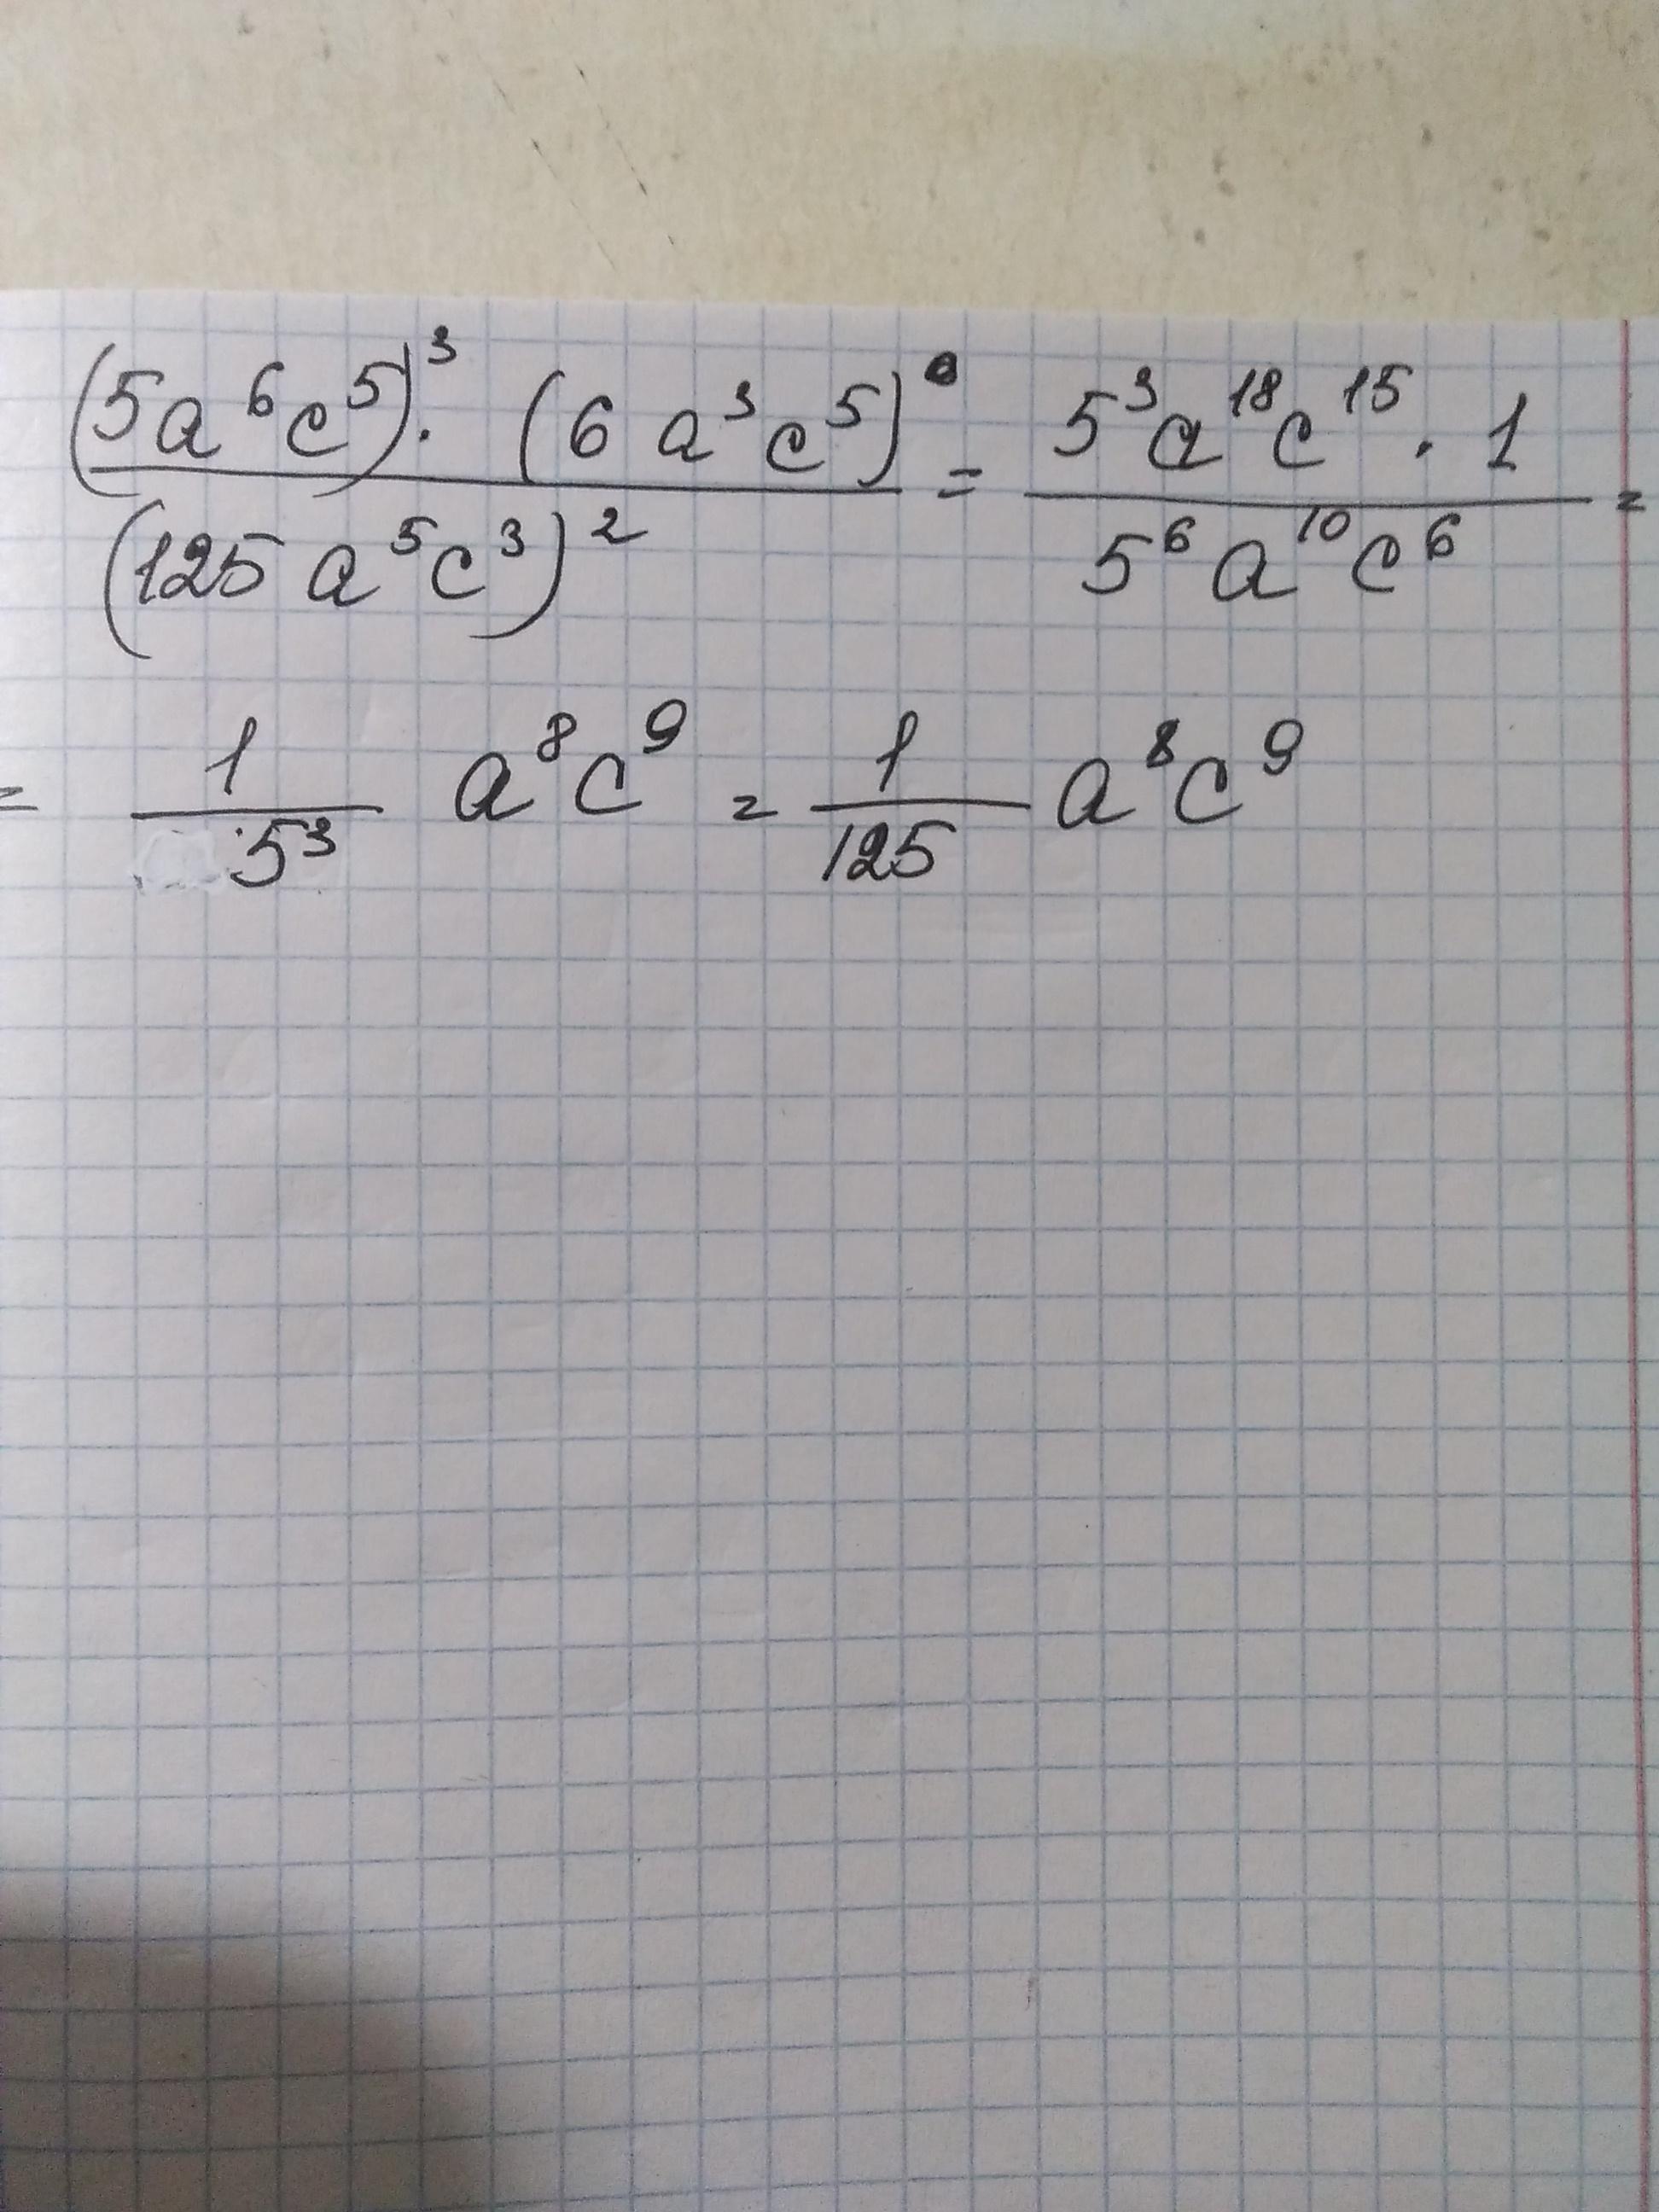 (5a⁶c⁵)³ · (6a³c⁵)⁰ / (125a⁵c³)² = 5³a¹⁸c¹⁵ · 1 / 5⁶a¹⁰c⁶ =
= 1/5³ a⁸c⁹ = 1/125 a⁸c⁹